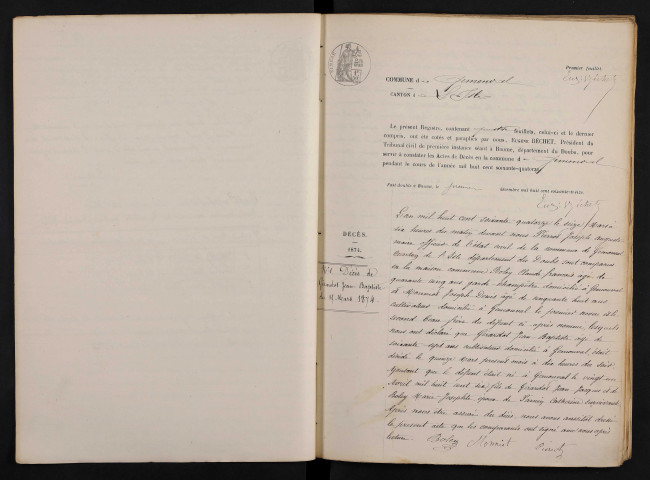 Premier feuillet
COMMUNE de Gémonval
CANTON de L'Isle
Le présent Registre, contenant quatre feuillets, celui-ci et le dernier
compris, ont été cotés et paraphés par nous, EUGÈNE BÉCHET, Président du
Tribunal civil de première instance séant à Baume, département du Doubs, pour
servir à constater les Actes de Décès en la commune de Gémonval
pendant le cours de l'année mil huit cent soixante-quatorze
Fait double à Baume, le décembre mil huit cent soixante-treize.
DÉCÈS.
1874.
N° 1 Décès de
Girardot Jean Baptiste
du Mars 1874
L'an mil huit cent soixante quatorze le seize Mars à
dix heures du matin devant nous Pierrot Joseph auguste
maire officier de l'état civil de la commune de Gémonval
canton de l'Isle département du Doubs sont comparus
en la maison commune Boley Claude françois âgé de
quarante cinq ans garde champêtre domicilié à Gémonval
et Monniot Joseph âgé de cinquante huit ans
cultivateur domicilié à Gémonval le premier
second beau frère du défunt ci après nommé, lesquels
nous ont déclaré que Girardot Jean Baptiste âgé de
soixante sept ans cultivateur domicilié à Gémonval était
décédé le quinze Mars présent mois à dix heures du soir
que le défunt était né à Gémonval le vingt un
Avril mil huit cent six fils de Girardot Jean Jacques et de
Boley Marie Josephte époux de Catherine
Après nous être assuré du décès nous avons dressé
le présent acte que les comparants ont signé avec nous après
lecture. Boley Monniot Pierrot